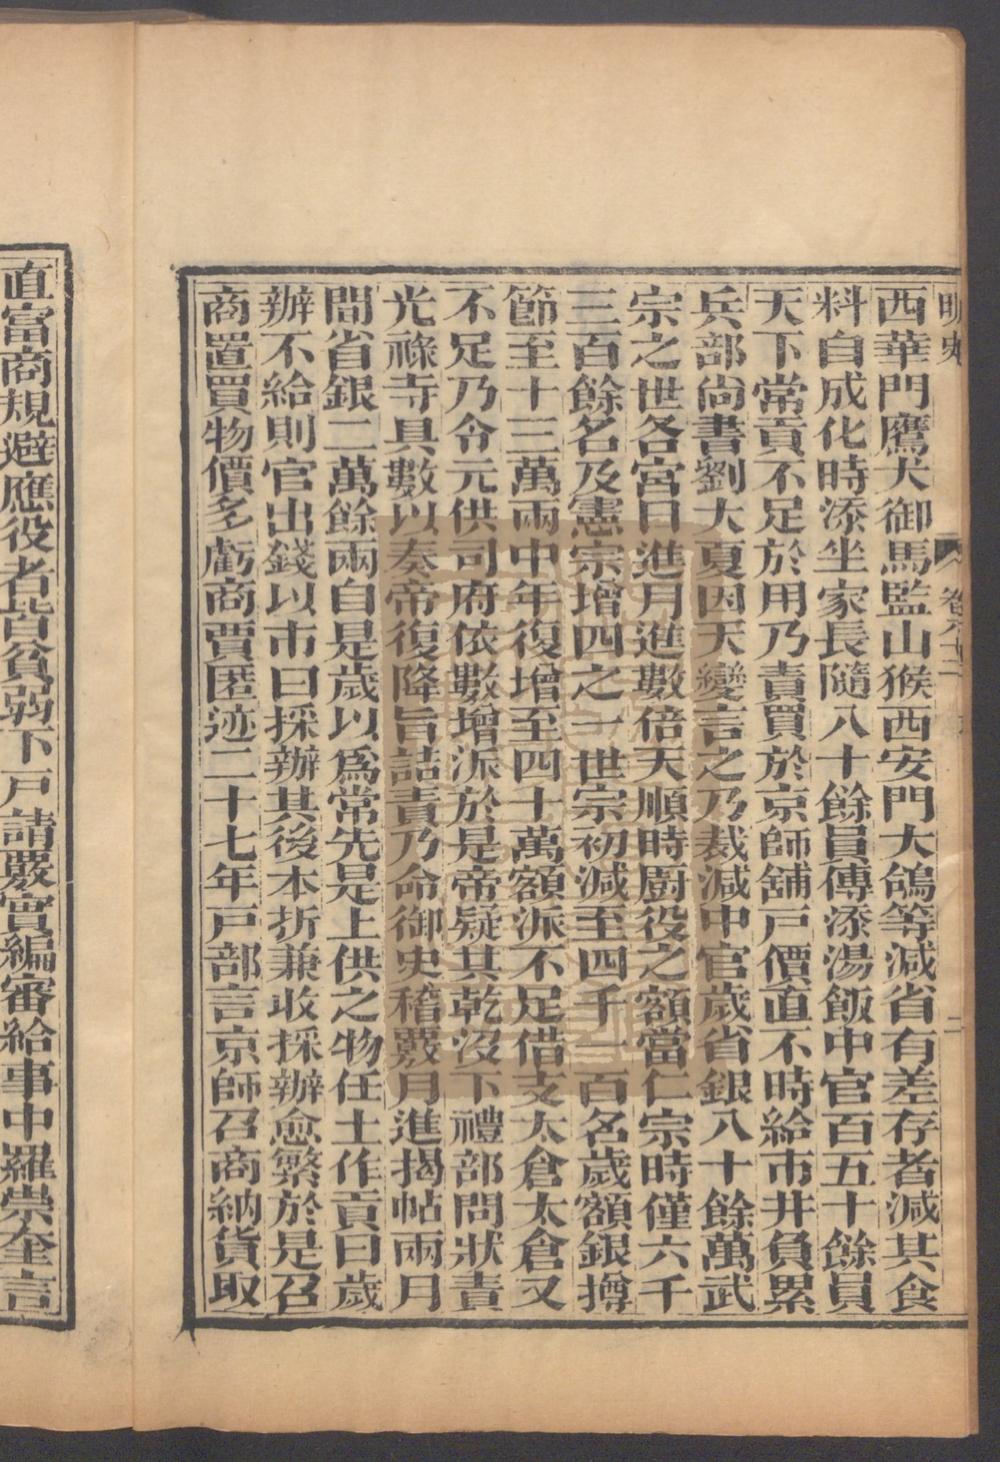 明史
卷八十二
二
西華門鷹犬御馬監山猴西安門大鴿等減省有差存者減其食
料自成化時添坐家長隨八十餘員傳添湯飯中官百五十餘員
天下常貢不足於用乃責買於京師舖戶價直不時給市井負累
兵部尚書劉大夏因天變言之乃裁減中官歲省銀八十餘萬武
宗之世各宮日進月進數倍天順時廚役之額當仁宗時僅六千
三百餘名及憲宗增四之一世宗初減至四千一百名歲額銀撙
節至十三萬兩中年復增至四十萬額派不足借支太倉太倉又
不足乃令元供司府依數增派於是帝疑其乾沒下禮部問狀責
光祿寺具數以奏帝復降旨詰責乃命御史稽覈月進揭帖兩月
間省銀二萬餘兩自是歲以爲常先是上供之物任土作貢曰歲
辦不給則官出錢以市曰採辦其後本折兼收採辦愈繁於是召
商置買物價多虧商賈匿迹二十七年戶部言京師召商納貨取
直富商規避應役者皆貧弱下戶請覈實編審給事中羅崇奎言